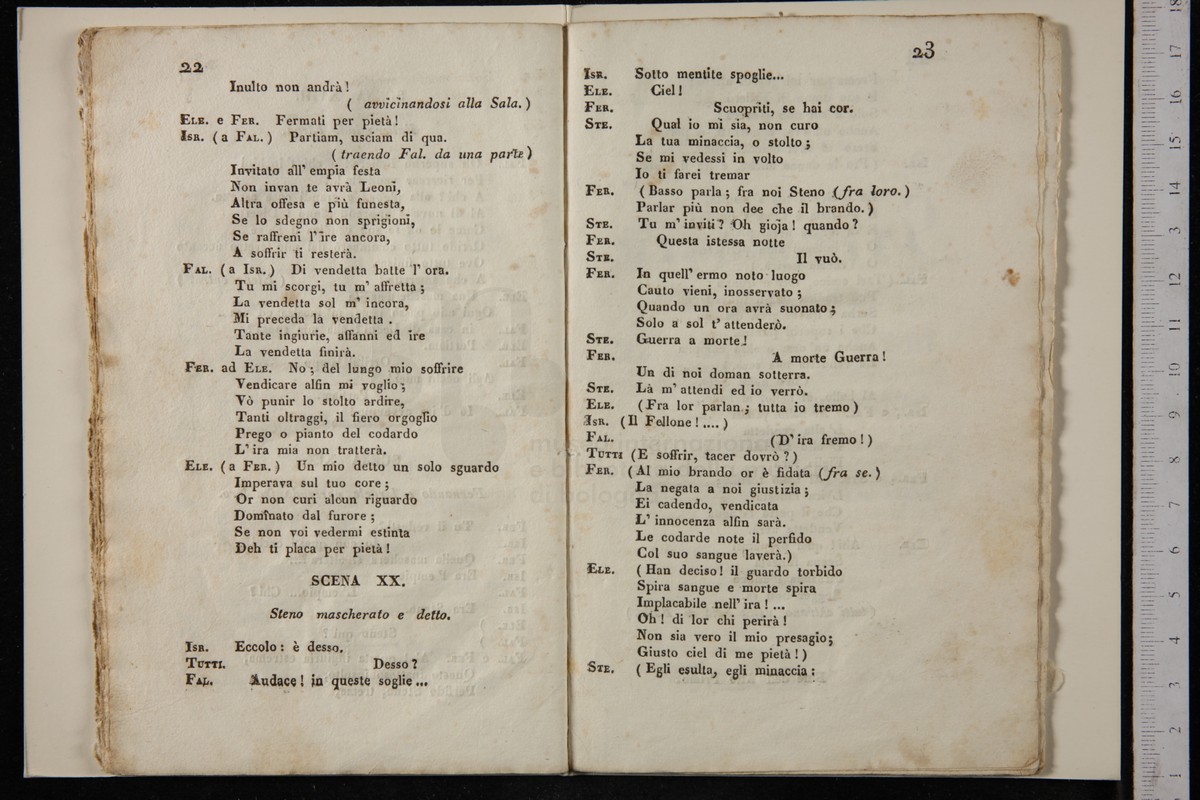 22
Inulto non andrà!
( avvicinandosi alla Sala. )
ELE. e FER. Fermati per pietà!
ISR. ( a FAL. ) Partiam, usciam di qua.
( traendo Fal. da una parte )
Invitato all' empia festa
Non invan te avrà Leoni,
Altra offesa e più funesta,
Se lo sdegno non sprigioni,
Se raffreni l'ire ancora,
A soffrir ti resterà.
FAL. ( a ISR. ) Di vendetta batte l' ora.
Tu mi scorgi, tu m' affretta ;
La vendetta sol m' incora,
Mi preceda la vendetta .
Tante ingiurie, affanni ed ire
La vendetta finirà.
FER. ad ELE. No ; del lungo mio soffrire
Vendicare alfin mi voglio ;
Vò punir lo stolto ardire,
Tanti oltraggi, il fiero orgoglio
Prego o pianto del codardo
L' ira mia non tratterà.
ELE. ( a FER. ) Un mio detto un solo sguardo
Imperava sul tuo core ;
Or non curi alcun riguardo
Dominato dal furore ;
Se non voi vedermi estinta
Deh ti placa per pietà !
SCENA XX.
Steno mascherato e detto.
ISR. Eccolo : è desso.
TUTTI. Desso ?
FAL. Audace ! in queste soglie ...
23
ISR. Sotto mentite spoglie...
ELE. Ciel !
FER. Scuopriti, se hai cor.
STE. Qual io mi sia, non curo
La tua minaccia, o stolto ;
Se mi vedessi in volto
Io ti farei tremar
FER. ( Basso parla ; fra noi Steno (fra loro. )
Parlar più non dee che il brando. )
STE. Tu m' inviti ? Oh gioja ! quando ?
FER. Questa istessa notte
STE. Il vuò.
FER. In quell' ermo noto luogo
Cauto vieni, inosservato ;
Quando un ora avrà suonato ;
Solo a sol t' attenderò.
STE. Guerra a morte!
FER. A morte Guerra !
Un di noi doman sotterra.
STE. Là m' attendi ed io verrò.
ELE. (Fra lor parlan ; tutta io tremo )
ISR. (Il Fellone ! .... )
FAL. (D' ira fremo ! )
TUTTI (E soffrir, tacer dovrò ? )
FER. (Al mio brando or è fidata (fra se. )
La negata a noi giustizia ;
Ei cadendo, vendicata
L' innocenza alfin sarà.
Le codarde note il perfido
Col suo sangue laverà.)
ELE. ( Han deciso! il guardo torbido
Spira sangue e morte spira
Implacabile nell' ira ! ...
Oh ! di lor chi perirà !
Non sia vero il mio presagio;
Giusto ciel di me pietà ! )
STE. ( Egli esulta, egli minaccia :